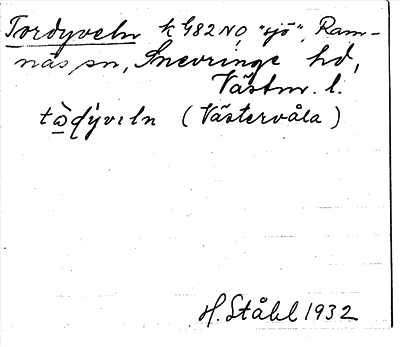 Tordyveln k G82NO, "sjö", Ram-
näs sn, Snevringe hd,
Västm. l.
tὼdývεln (Västervåla)
H. Ståhl 1932